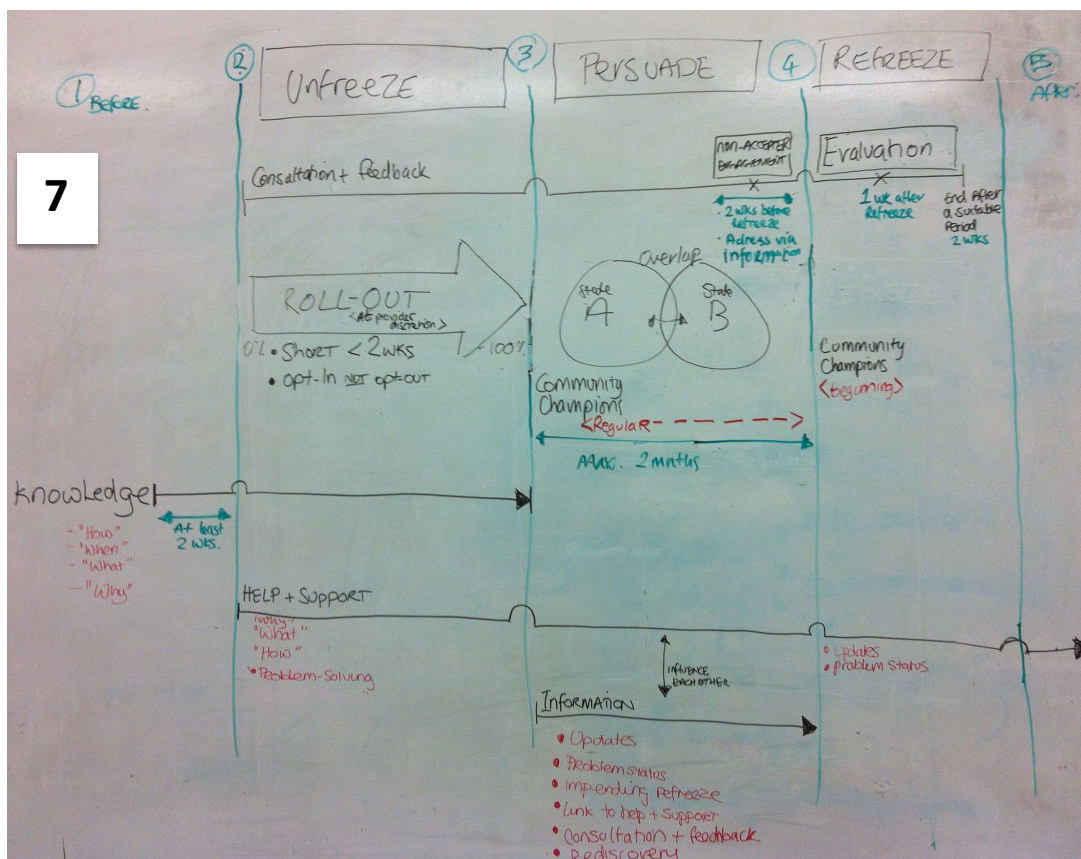 7
1 Before.
2
Unfreeze
3
Persuade
4
Refreeze
5
After.
Consultation + feedback
Non-Accepter
Engagement
• 2 wks before
Refreeze
• Adress via
Information
Evaluation
1 wk after
Refreeze
End After
a suitable
Period
2 wks
ROLL-OUT
<At provider
discretion>
0%
~100%
• Short < 2 wks
• Opt-In NOT opt-out
Overlap
State
A
State
B
Community
Champions
<Regular - - - >
Max. 2 mnths
Community
Champions
<Beginning>
Knowledge
At least
2 wks.
- "How"
- "When"
- "What"
- "Why"
HELP + SUPPORT
"Why"
"What"
"How"
• Problem-Solving
Influence
Each other
• Updates
• problem status
Information
• Updates
• Problem status
• Impending refreeze
• Link to help + support
• Consultation + feedback
• Rediscovery